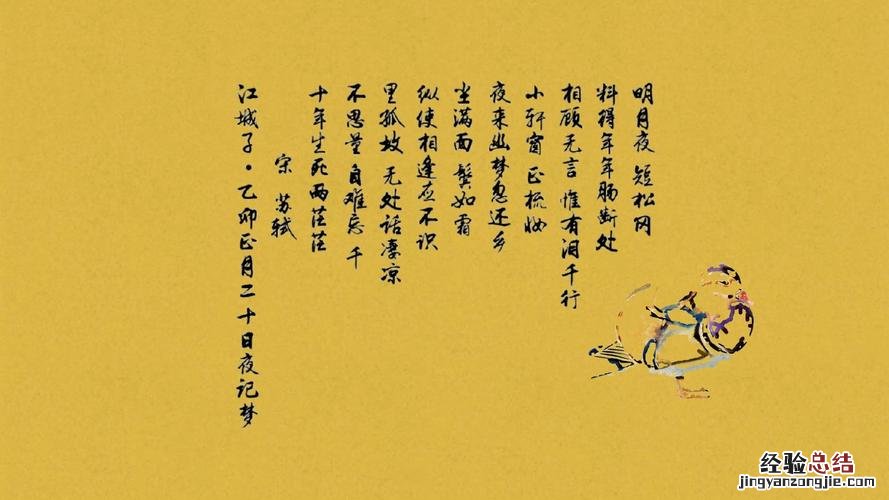 江城子·乙卯正月二十日夜记梦
宋 苏轼
十年生死两茫茫
不思量 自难忘 千
里孤坟 无处话凄凉
纵使相逢应不识
尘满面 鬓如霜
夜来幽梦忽还乡
小轩窗 正梳妆
相顾无言 惟有泪千行
料得年年肠断处
明月夜 短松冈
经验总结
jingyanzongjie.com